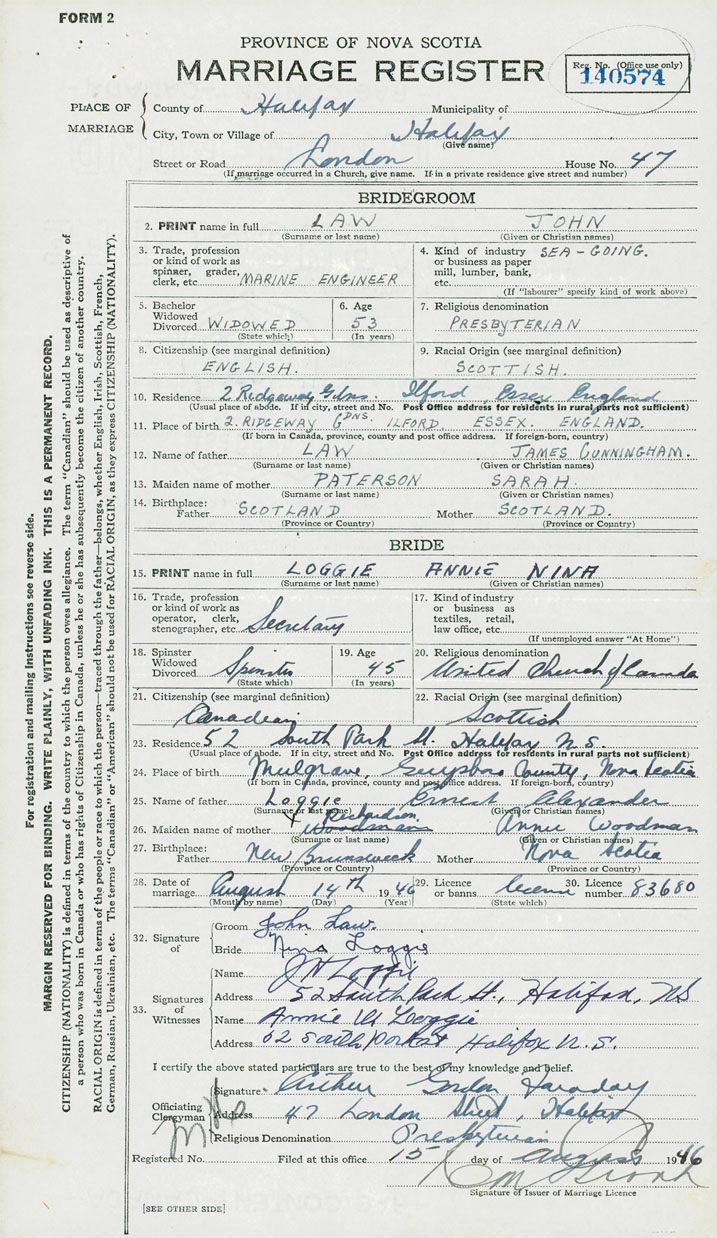 FORM 2
PROVINCE OF NOVA SCOTIA
MARRIAGE REGISTER
Reg. No. (Office use only)
140574
PLACE OF MARRIAGE
County of Halifax Municipality of
City, Town or Village of Halifax
(Give name)
Street or Road London House No. 47
(If marriage occurred in a Church, give name. If in a private residence give street and number)
BRIDEGROOM
2. PRINT name in full LAW JOHN
(Surname or last name) (Given or Christian names)
3. Trade, profession or kind of work as spinner, grader, clerk, etc. MARINE ENGINEER
4. Kind of industry or business as paper mill, lumber, bank, etc. SEA-GOING.
(If "labourer" specify kind of work above)
5. Bachelor Widowed Divorced WIDOWED
(State which)
6. Age 53
(In years)
7. Religious denomination
PRESBYTERIAN
8. Citizenship (see marginal definition)
ENGLISH.
9. Racial Origin (see marginal definition)
SCOTTISH.
10. Residence 2 Ridgeway Gdns. Ilford, Essex England
(Usual place of abode. If in city, street and No. Post Office address for residents in rural parts not sufficient)
11. Place of birth 2. RIDGEWAY GDNS. ILFORD. ESSEX. ENGLAND.
(If born in Canada, province, county and post office address. If foreign-born, country)
12. Name of father LAW JAMES CUNNINGHAM.
(Surname or last name) (Given or Christian names)
13. Maiden name of mother PATERSON SARAH.
(Surname or last name) (Given or Christian names)
14. Birthplace: Father SCOTLAND Mother SCOTLAND.
(Province or Country) (Province or Country)
BRIDE
15. PRINT name in full LOGGIE ANNIE NINA
(Surname or last name) (Given or Christian names)
16. Trade, profession or kind of work as operator, clerk, stenographer, etc. Secretary
17. Kind of industry or business as textiles, retail, law office, etc.
(If unemployed answer "At Home")
18. Spinster Widowed Divorced Spinster
(State which)
19. Age 45
(In years)
20. Religious denomination
United Church of Canada
21. Citizenship (see marginal definition)
Canadian
22. Racial Origin (see marginal definition)
Scottish
23. Residence 52 South Park St. Halifax N.S.
(Usual place of abode. If in city, street and No. Post Office address for residents in rural parts not sufficient)
24. Place of birth Mulgrave, Guysboro County, Nova Scotia
(If born in Canada, province, county and post office address. If foreign-born, country)
25. Name of father Loggie Ernest Alexander
(Surname or last name) (Given or Christian names)
x Richardson
26. Maiden name of mother Woodman Annie Woodman
(Surname or last name) (Given or Christian names)
27. Birthplace: Father New Brunswick Mother Nova Scotia
(Province or Country) (Province or Country)
28. Date of marriage August 14th 1946
(Month by name) (Day) (Year)
29. Licence or banns. licence
(State which)
30. Licence number 83680
32. Signature of
Groom John Law.
Bride Nina Loggie
33. Signatures of Witnesses
Name J H Loggie
Address 52 South Park St., Halifax, NS
Name Annie M Loggie
Address 52 South Park St Halifax N.S.
I certify the above stated particulars are true to the best of my knowledge and belief.
Officiating Clergyman
Signature Arthur Gordon Faraday
Address 47 London Street, Halifax
Religious Denomination Presbyterian
Registered No. Filed at this office 15 day of August 1946
Signature of Issuer of Marriage Licence
[SEE OTHER SIDE]
For registration and mailing instructions see reverse side.
MARGIN RESERVED FOR BINDING. WRITE PLAINLY, WITH UNFADING INK. THIS IS A PERMANENT RECORD.
CITIZENSHIP (NATIONALITY) is defined in terms of the country to which the person owes allegiance. The term "Canadian" should be used as descriptive of
a person who was born in Canada or who has rights of Citizenship in Canada, unless he or she has subsequently become the citizen of another country.
RACIAL ORIGIN is defined in terms of the people or race to which the person—traced through the father—belongs, whether English, Irish, Scottish, French,
German, Russian, Ukrainian, etc. The terms "Canadian" or "American" should not be used for RACIAL ORIGIN, as they express CITIZENSHIP (NATIONALITY).